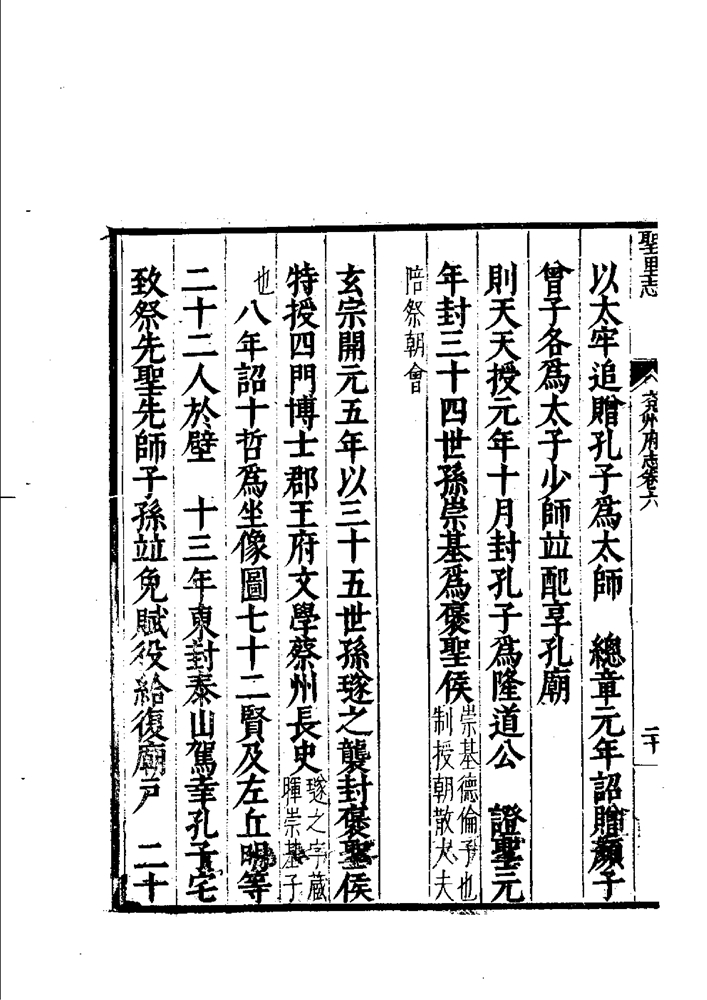 聖里志
兖州府志卷六
二十
以太牢追贈孔子爲太師　總章元年詔贈顏子
曾子各爲太子少師竝配享孔廟
則天天授元年十月封孔子爲隆道公　證聖元
年封三十四世孫崇基爲褒聖侯崇基德倫子也制授朝散大夫
陪祭朝會
玄宗開元五年以三十五世孫璲之襲封褒聖侯
特授四門博士郡王府文學蔡州長史璲之字藏暉崇基子
也　八年詔十哲爲坐像圖七十二賢及左丘明等
二十二人於壁　十三年東封泰山駕幸孔子宅
致祭先聖先師子孫竝免賦役給復廟戸　二十